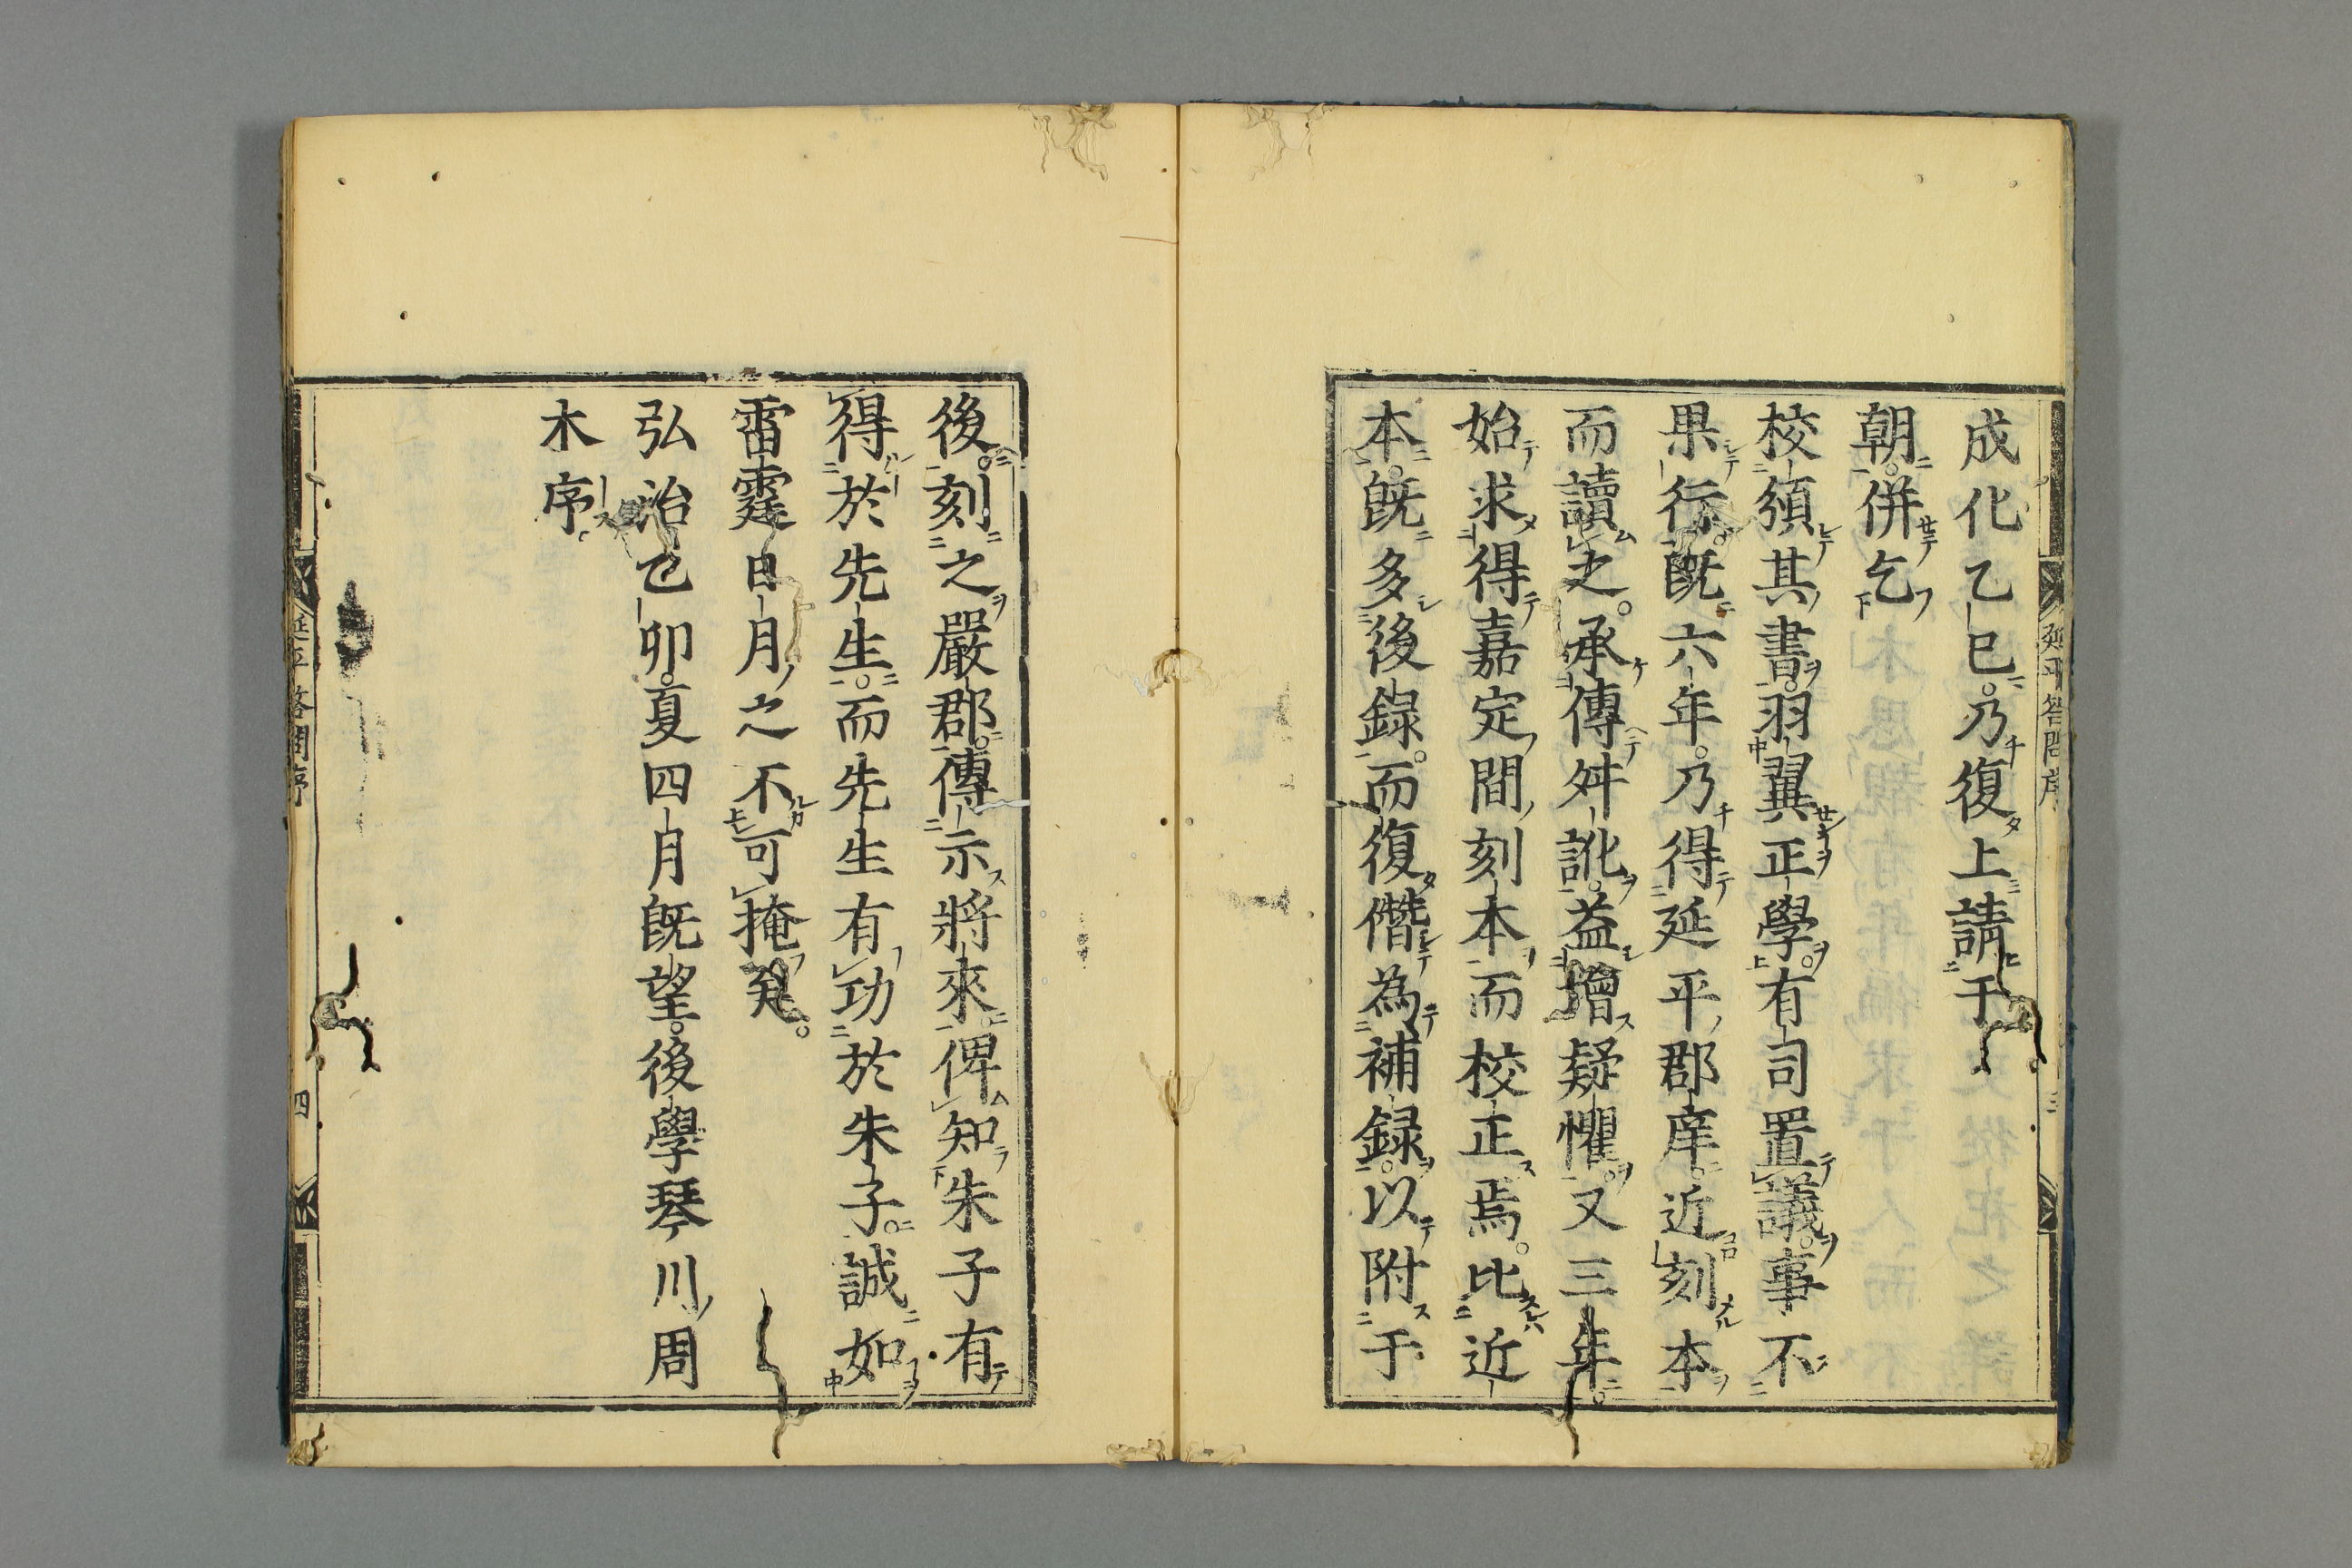 成化乙巳乃復上請于
朝併乞
校頒其書羽翼正學有司置議事不
果行旣六年乃得延平郡庠近刻本
而讀之承傳舛訛益增疑懼又三年
始求得嘉定間刻本而校正焉比近
本旣多後錄而復僭為補錄以附于
後刻之嚴郡傳示將來俾知朱子有
得於先生而先生有功於朱子誠如
雷霆日月之不可掩矣
弘治乙卯夏四月旣望後學琴川周
木序
延平答問序
四